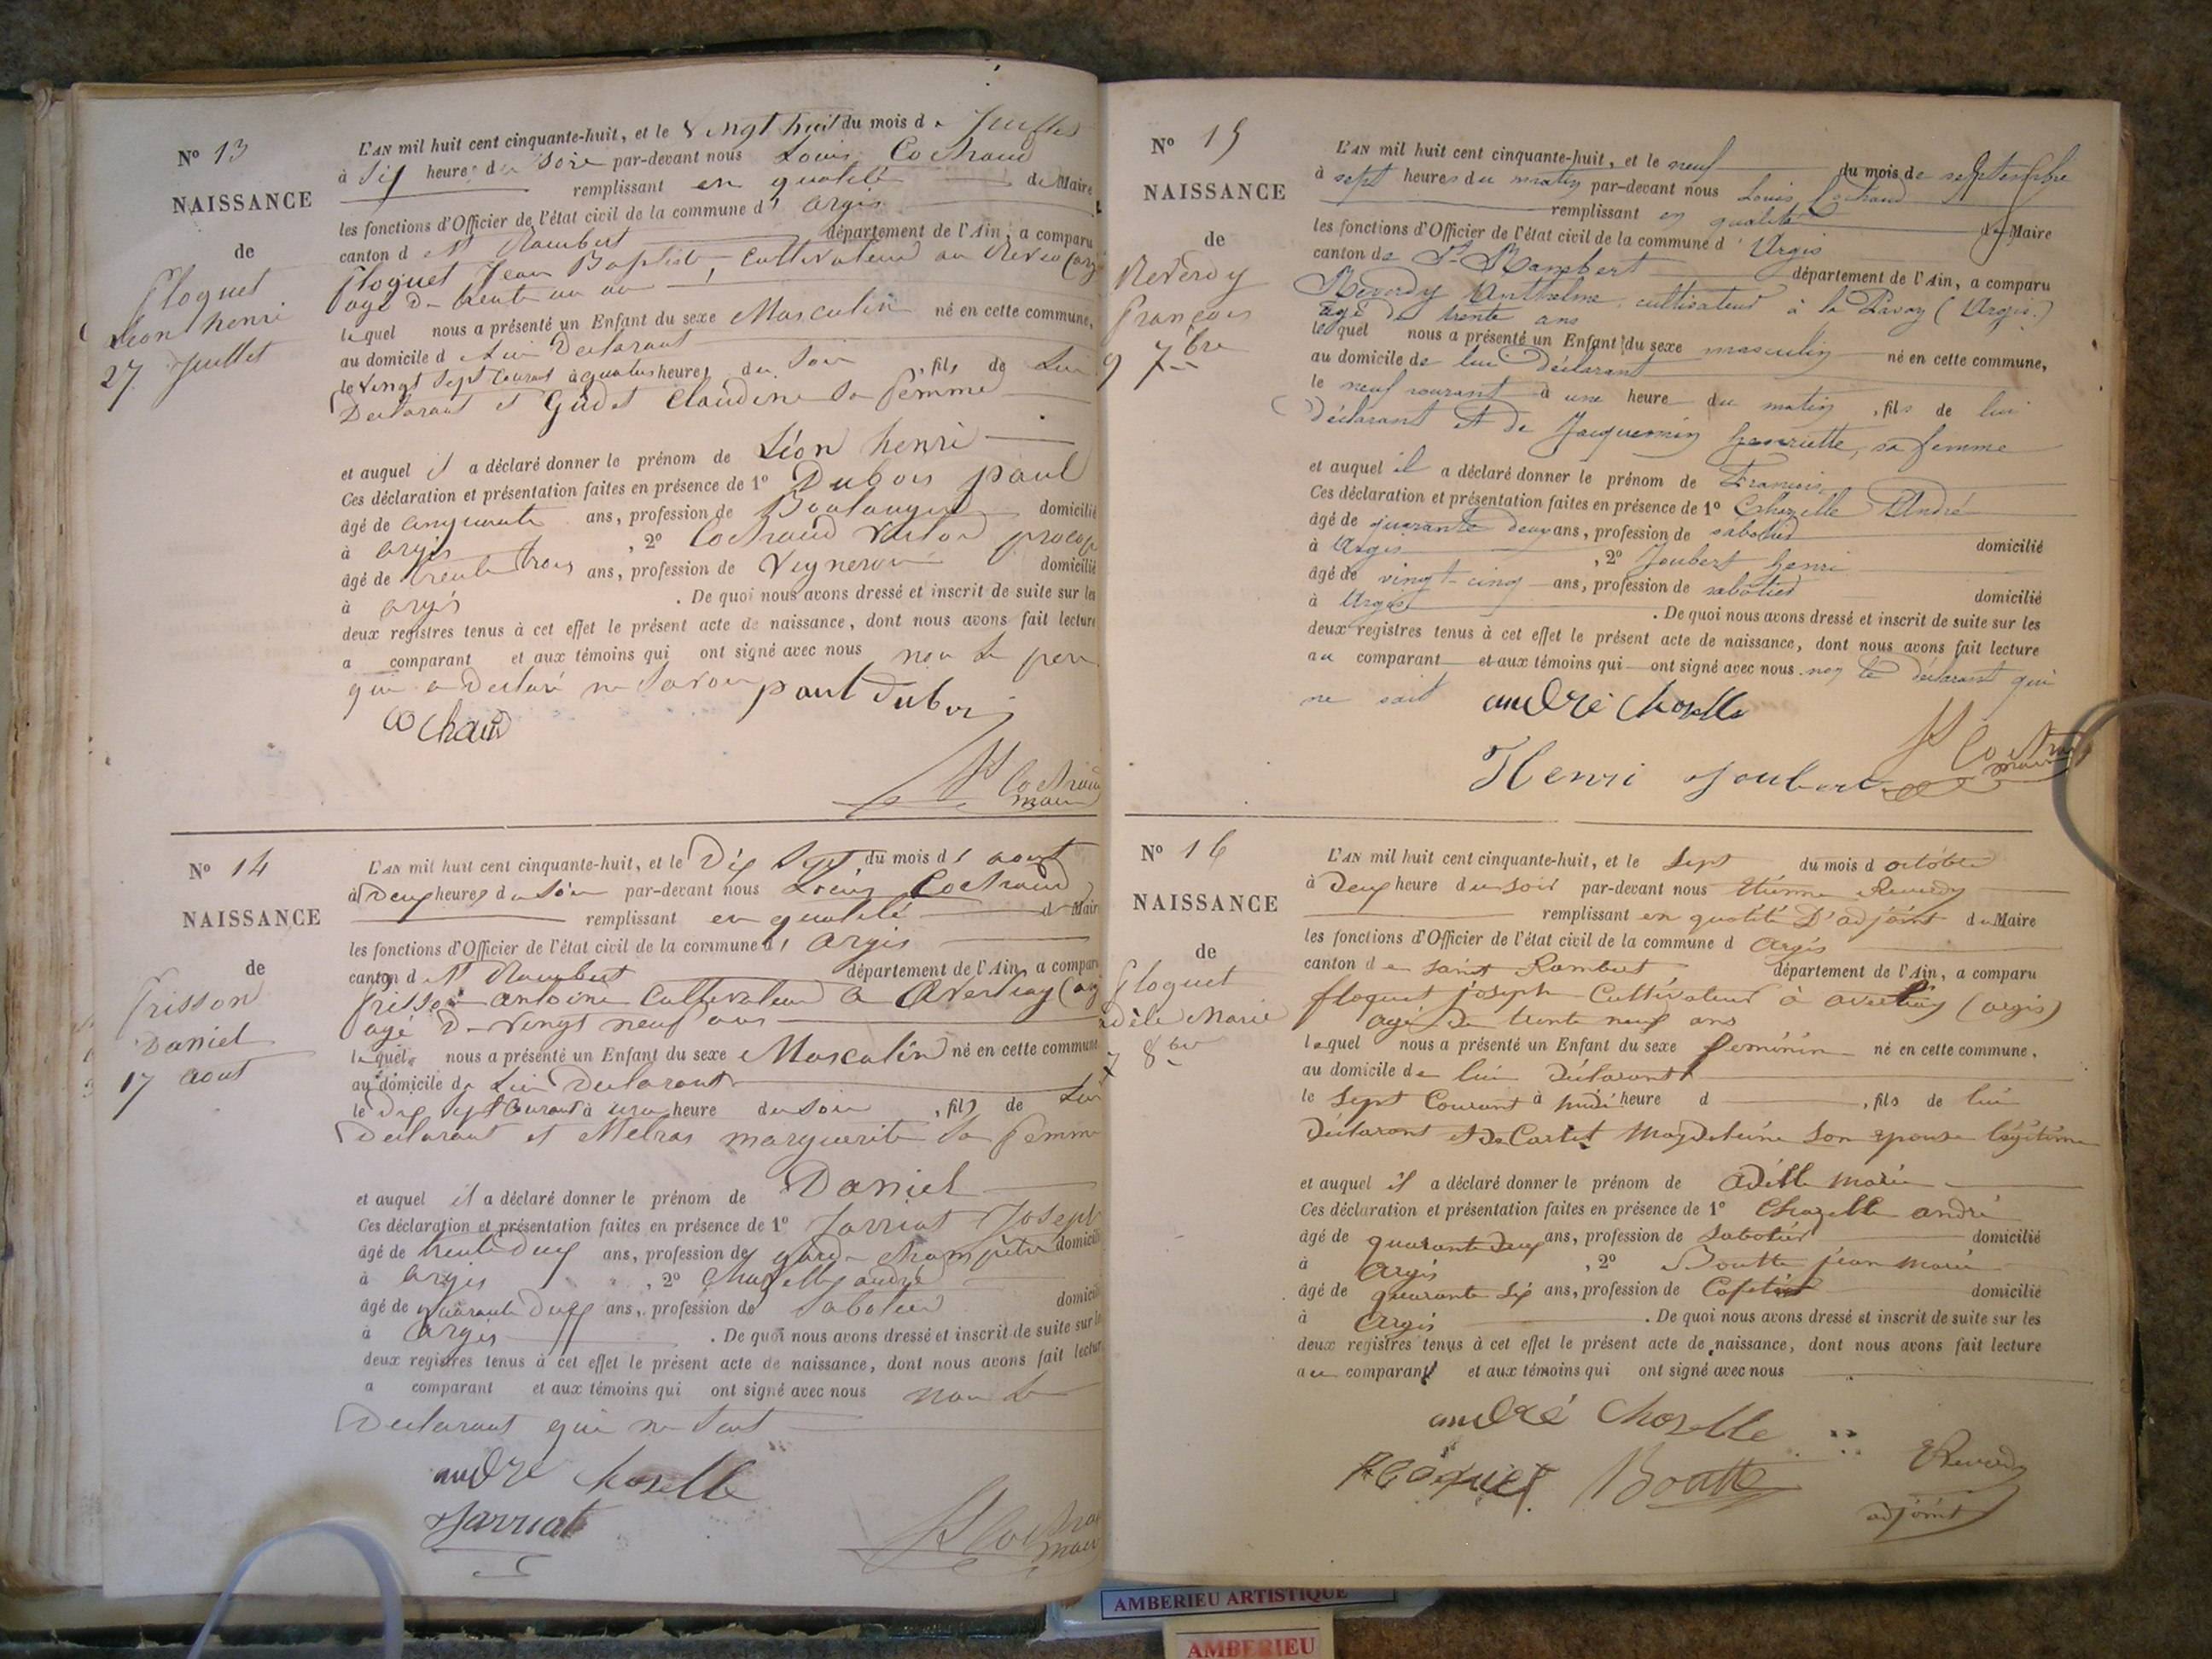 N° 13
NAISSANCE
de
Floquet
Léon henri
27 Juillet
L'AN mil huit cent cinquante-huit, et le Vingt huit du mois de Juillet
à Six heures du Soir par-devant nous Louis Cochaud
remplissant en qualité de Maire
les fonctions d'Officier de l'état civil de la commune d'argis
canton d St Rambert département de l'Ain, a comparu
floquet Jean Baptiste, Cultivateur au
agé de trente un ans
lequel nous a présenté un Enfant du sexe Masculin né en cette commune,
au domicile de Lui Déclarant
le Vingt Sept Courant à quatre heures du Soir, fils de Lui
Déclarant et Gudet Claudine Sa femme
et auquel il a déclaré donner le prénom de Léon henri
Ces déclaration et présentation faites en présence de 1° Dubois paul
âgé de cinquante ans, profession de Boulanger domicilié
à argis, 2° Cochaud
âgé de trente trois ans, profession de Vigneron domicilié
à argis. De quoi nous avons dressé et inscrit de suite sur les
deux registres tenus à cet effet le présent acte de naissance, dont nous avons fait lecture
a comparant et aux témoins qui ont signé avec nous non le pere
qui a Declaré ne Savoir paul dubois
Cochaud
Cochaud
maire
N° 14
NAISSANCE
de
frisson
Daniel
17 aout
L'AN mil huit cent cinquante-huit, et le Dix Sept du mois d'aout
à Deux heures du Soir par-devant nous Louis Cochaud
remplissant en qualité de Maire
les fonctions d'Officier de l'état civil de la commune d'argis
canton d St Rambert département de l'Ain, a comparu
frisson antoine Cultivateur a
agé de Vingt neuf ans
lequel nous a présenté un Enfant du sexe Masculin né en cette commune
au domicile de Lui Declarant
le Dix Sept Courant à une heure du Soir, fils de Lui
Declarant et Melras marguerite Sa femme
et auquel il a déclaré donner le prénom de Daniel
Ces déclaration et présentation faites en présence de 1° Jarriat Joseph
âgé de trente Deux ans, profession de garde champêtre domicilié
à argis, 2° Chazelle andré
âgé de quarante Deux ans, profession de Sabotier domicilié
à argis. De quoi nous avons dressé et inscrit de suite sur les
deux registres tenus à cet effet le présent acte de naissance, dont nous avons fait lecture
a comparant et aux témoins qui ont signé avec nous non le
Declarant qui ne Sait
andré Chazelle
Jarriat
Cochaud
maire
N° 15
NAISSANCE
de
Reverdy
François
9 7bre
L'AN mil huit cent cinquante-huit, et le neuf du mois de septembre
à sept heures du matin par-devant nous Louis Cochaud
remplissant en qualité de Maire
les fonctions d'Officier de l'état civil de la commune d'Argis
canton de St Rambert département de l'Ain, a comparu
Reverdy Anthelme, cultivateur à la (Argis)
âgé de trente ans
lequel nous a présenté un Enfant du sexe masculin né en cette commune,
au domicile de lui Déclarant
le neuf courant à une heure du matin, fils de lui
déclarant et de Jacquemin henriette, sa femme
et auquel il a déclaré donner le prénom de François
Ces déclaration et présentation faites en présence de 1° Chazelle André
âgé de quarante deux ans, profession de sabotier domicilié
à Argis, 2° Joubert henri
âgé de vingt-cinq ans, profession de sabotier domicilié
à Argis. De quoi nous avons dressé et inscrit de suite sur les
deux registres tenus à cet effet le présent acte de naissance, dont nous avons fait lecture
au comparant et aux témoins qui ont signé avec nous non le déclarant qui
ne sait andré Chazelle
Henri Joubert
Cochaud
maire
N° 16
NAISSANCE
de
floquet
adèle Marie
7 8bre
L'AN mil huit cent cinquante-huit, et le Sept du mois d octobre
à Deux heure du soir par-devant nous Etienne Reverdy
remplissant en qualité D'adjoint du Maire
les fonctions d'Officier de l'état civil de la commune d argis
canton de saint Rambert département de l'Ain, a comparu
floquet joseph Cultivateur à (argis)
agé de trente neuf ans
lequel nous a présenté un Enfant du sexe feminin né en cette commune,
au domicile de lui Déclarant
le Sept Courant à midi heure d, fils de lui
Déclarant et De Cartet Magdeleine Son epouse légitime
et auquel il a déclaré donner le prénom de adèle marie
Ces déclaration et présentation faites en présence de 1° Chazelle andré
âgé de quarante deux ans, profession de Sabotier domicilié
à argis, 2° Boutte jean marie
âgé de quarante Six ans, profession de Cafetier domicilié
à argis. De quoi nous avons dressé et inscrit de suite sur les
deux registres tenus à cet effet le présent acte de naissance, dont nous avons fait lecture
au comparant et aux témoins qui ont signé avec nous
andré Chazelle
floquet Boutte Reverdy
adjoint
AMBERIEU ARTISTIQUE
AMBERIEU